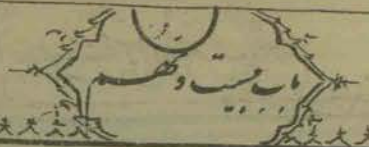 باب بیست و نهم